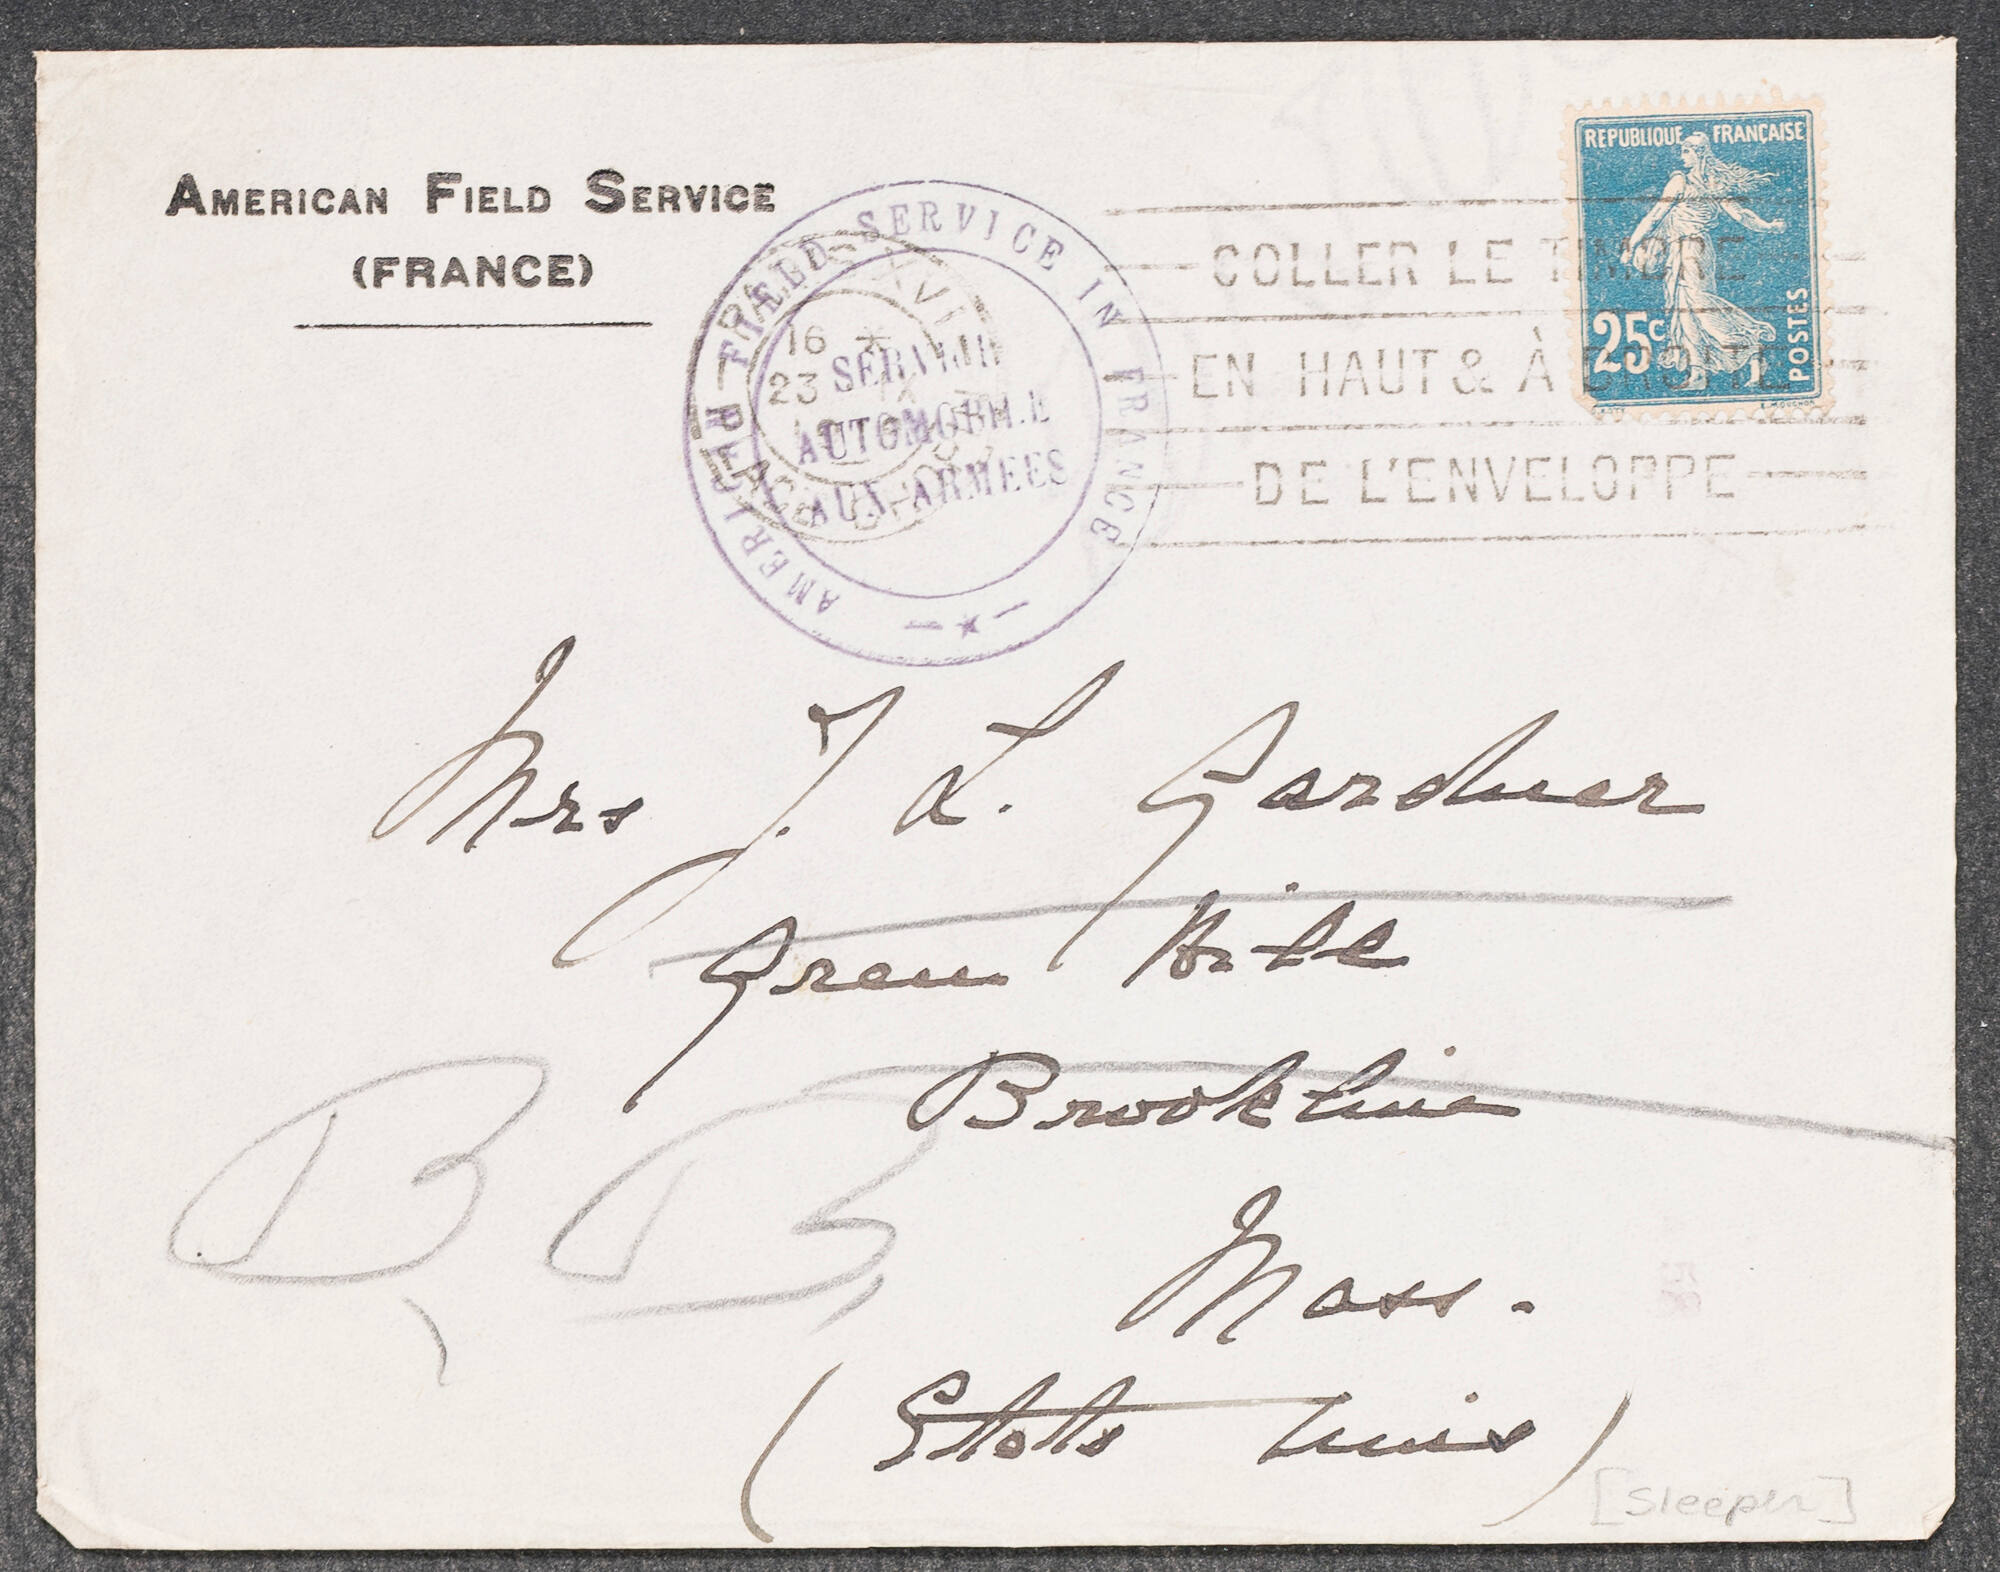 AMERICAN FIELD SERVICE
(FRANCE)
AMERICAN FIELD SERVICE IN FRANCE
SERVICE
AUTOMOBILE
AUX ARMEES
PARIS XVI
16 *
23 IX
PLACE CHOPIN
COLLER LE TIMBRE
EN HAUT & À DROITE
DE L'ENVELOPPE
REPUBLIQUE FRANÇAISE
25c
POSTES
E. MOUCHON
Mrs J. L. Gardner
Green Hill
Brookline
Mass.
(Etats Unis)
B B
[Sleeper]